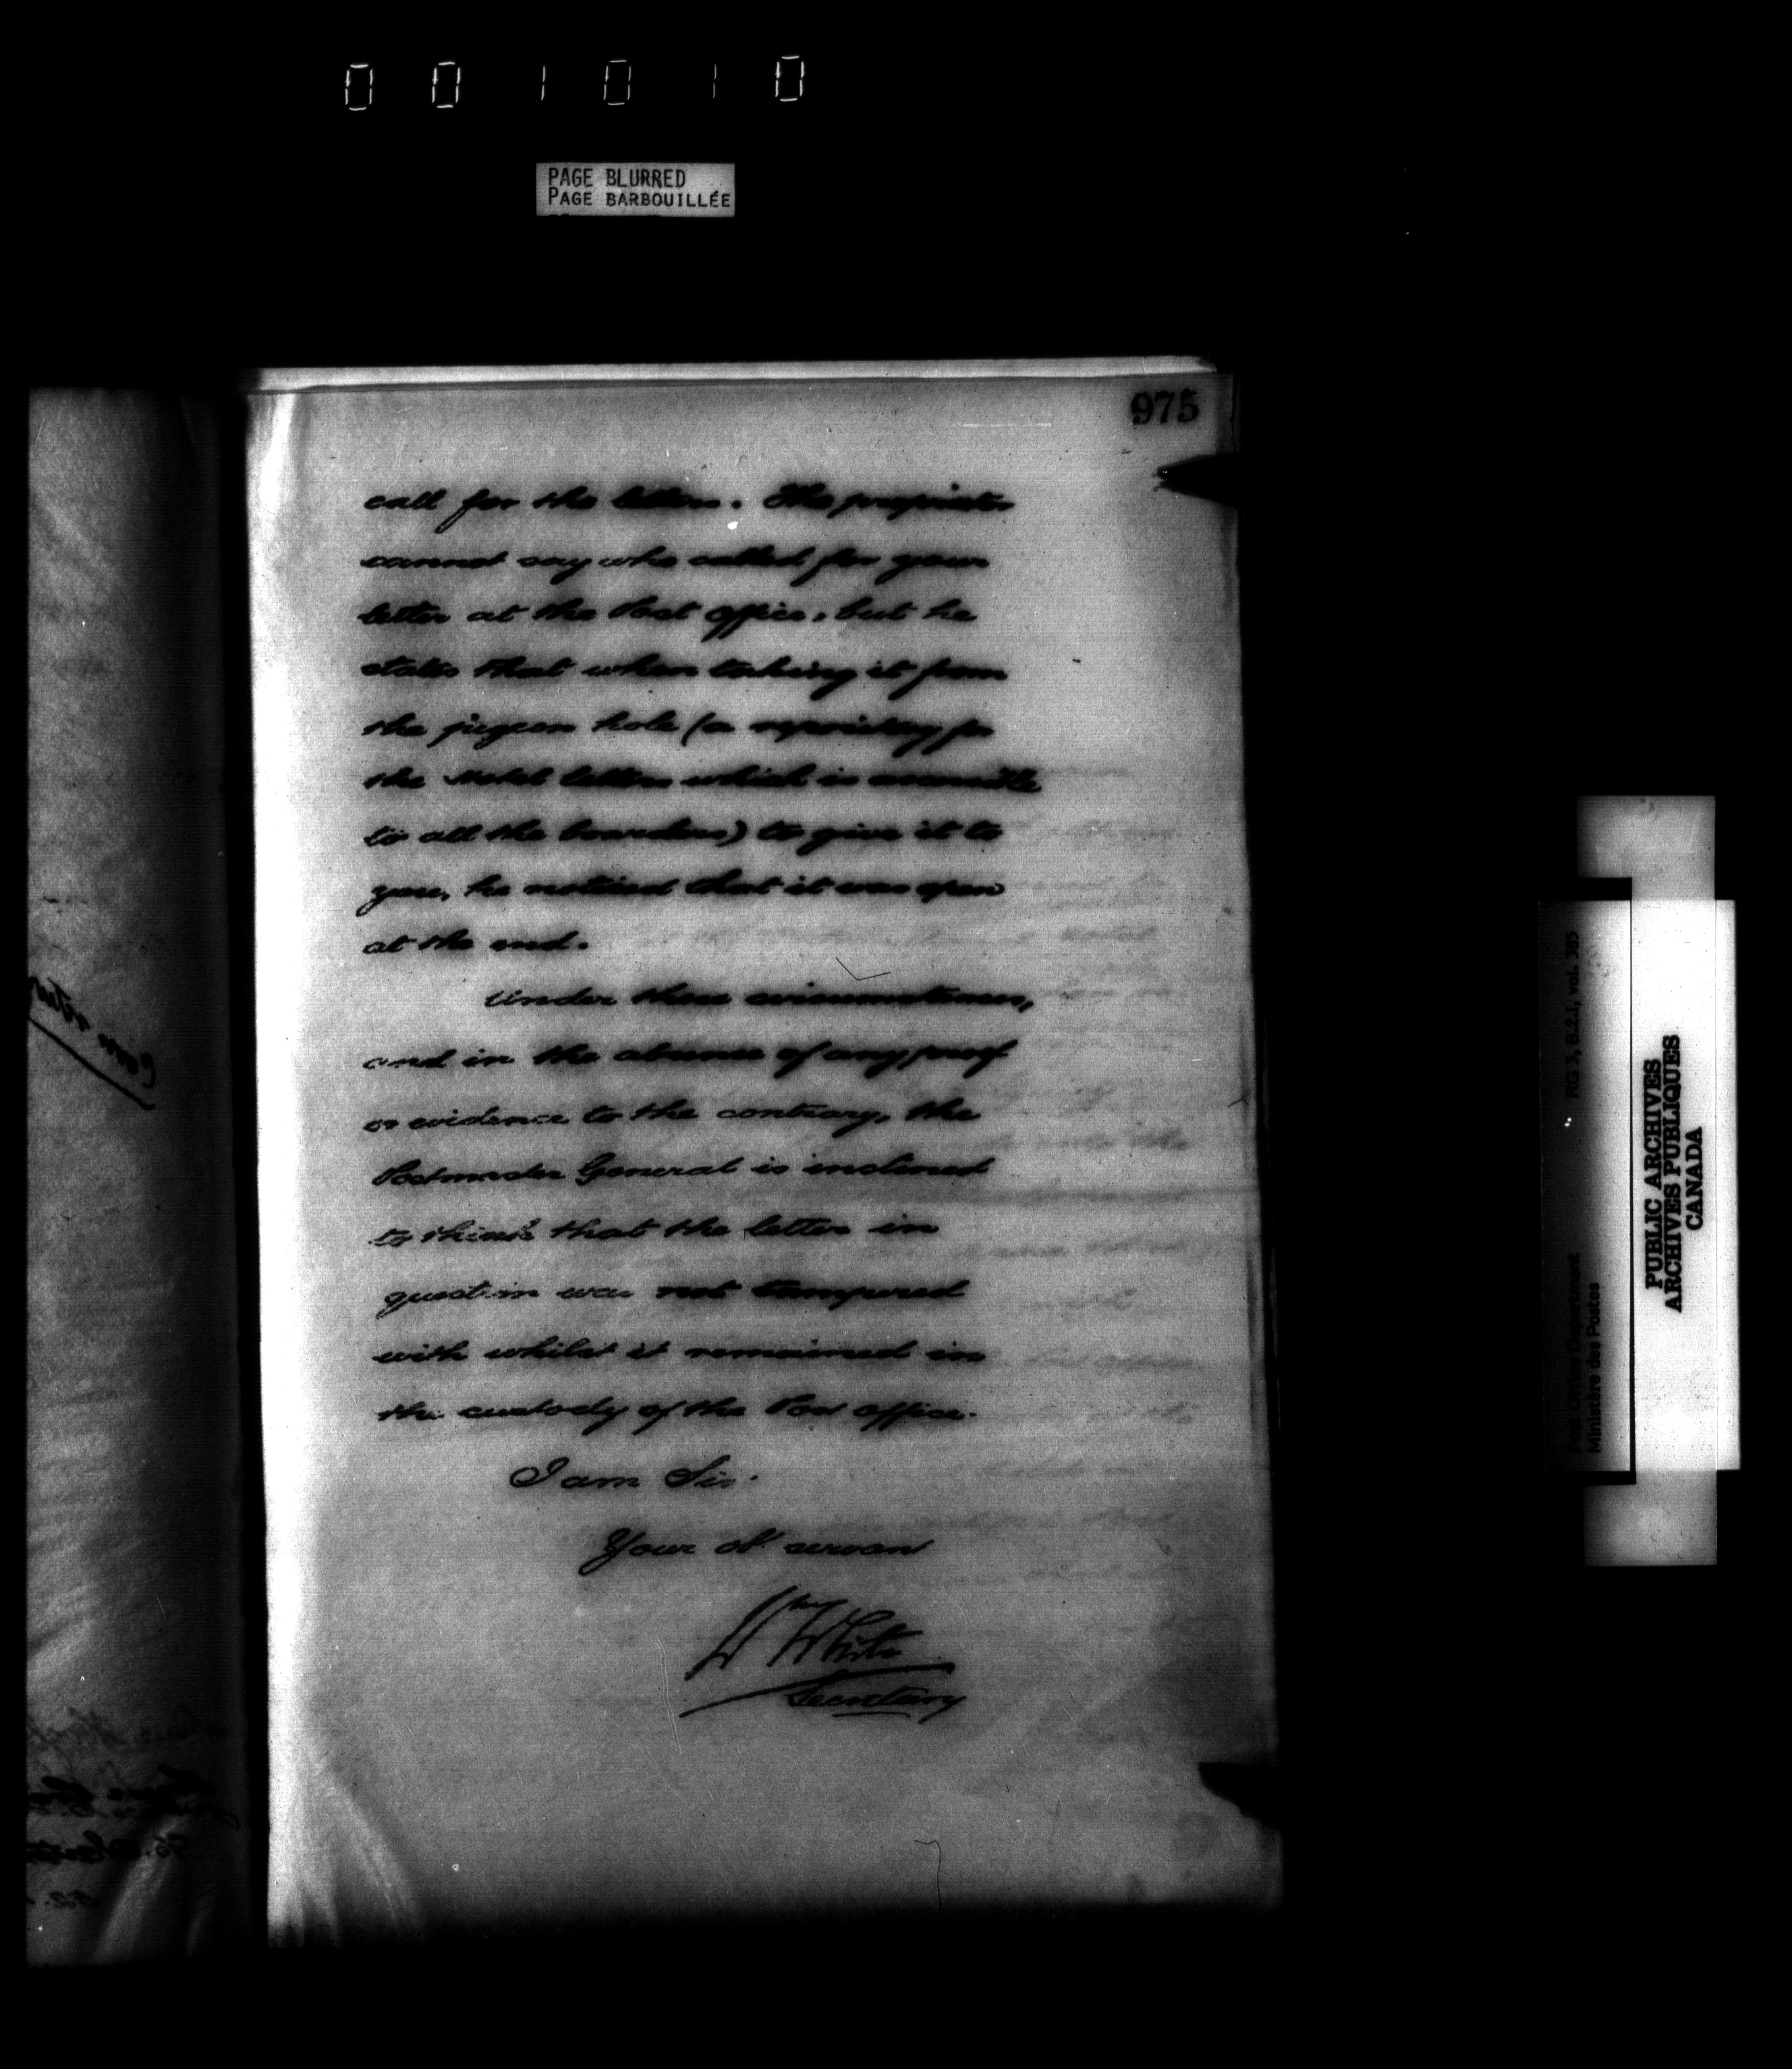 001010
PAGE BLURRED
PAGE BARBOUILLÉE
975
call for the letters. The proprietor
cannot say who called for your
letter at the Post Office, but he
states that when taking it from
the pigeon hole (a repository for
the Hotel letters which is accessible
to all the boarders) to give it to
you, he noticed that it was open
at the end.
Under these circumstances,
and in the absence of any proof
or evidence to the contrary, the
Postmaster General is inclined
to think that the letter in
question was not tampered
with whilst it remained in
the custody of the Post Office.
I am Sir.
Your ob. servant
Wm White
Secretary
RG 3, B.2.1, vol. 385
Post Office Department
Ministère des Postes
PUBLIC ARCHIVES
ARCHIVES PUBLIQUES
CANADA